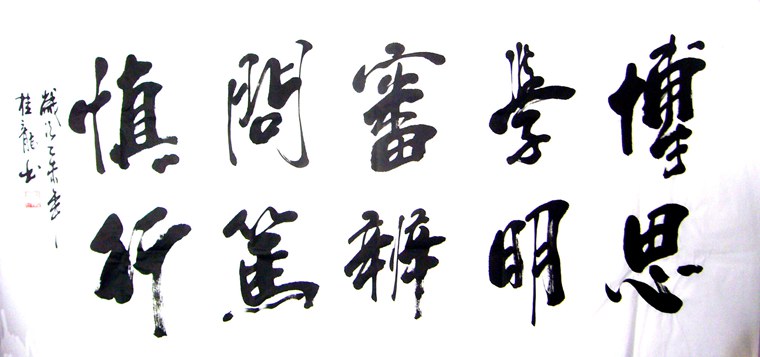 博學審問慎
思明辨篤行
歲次乙未
桂龍书